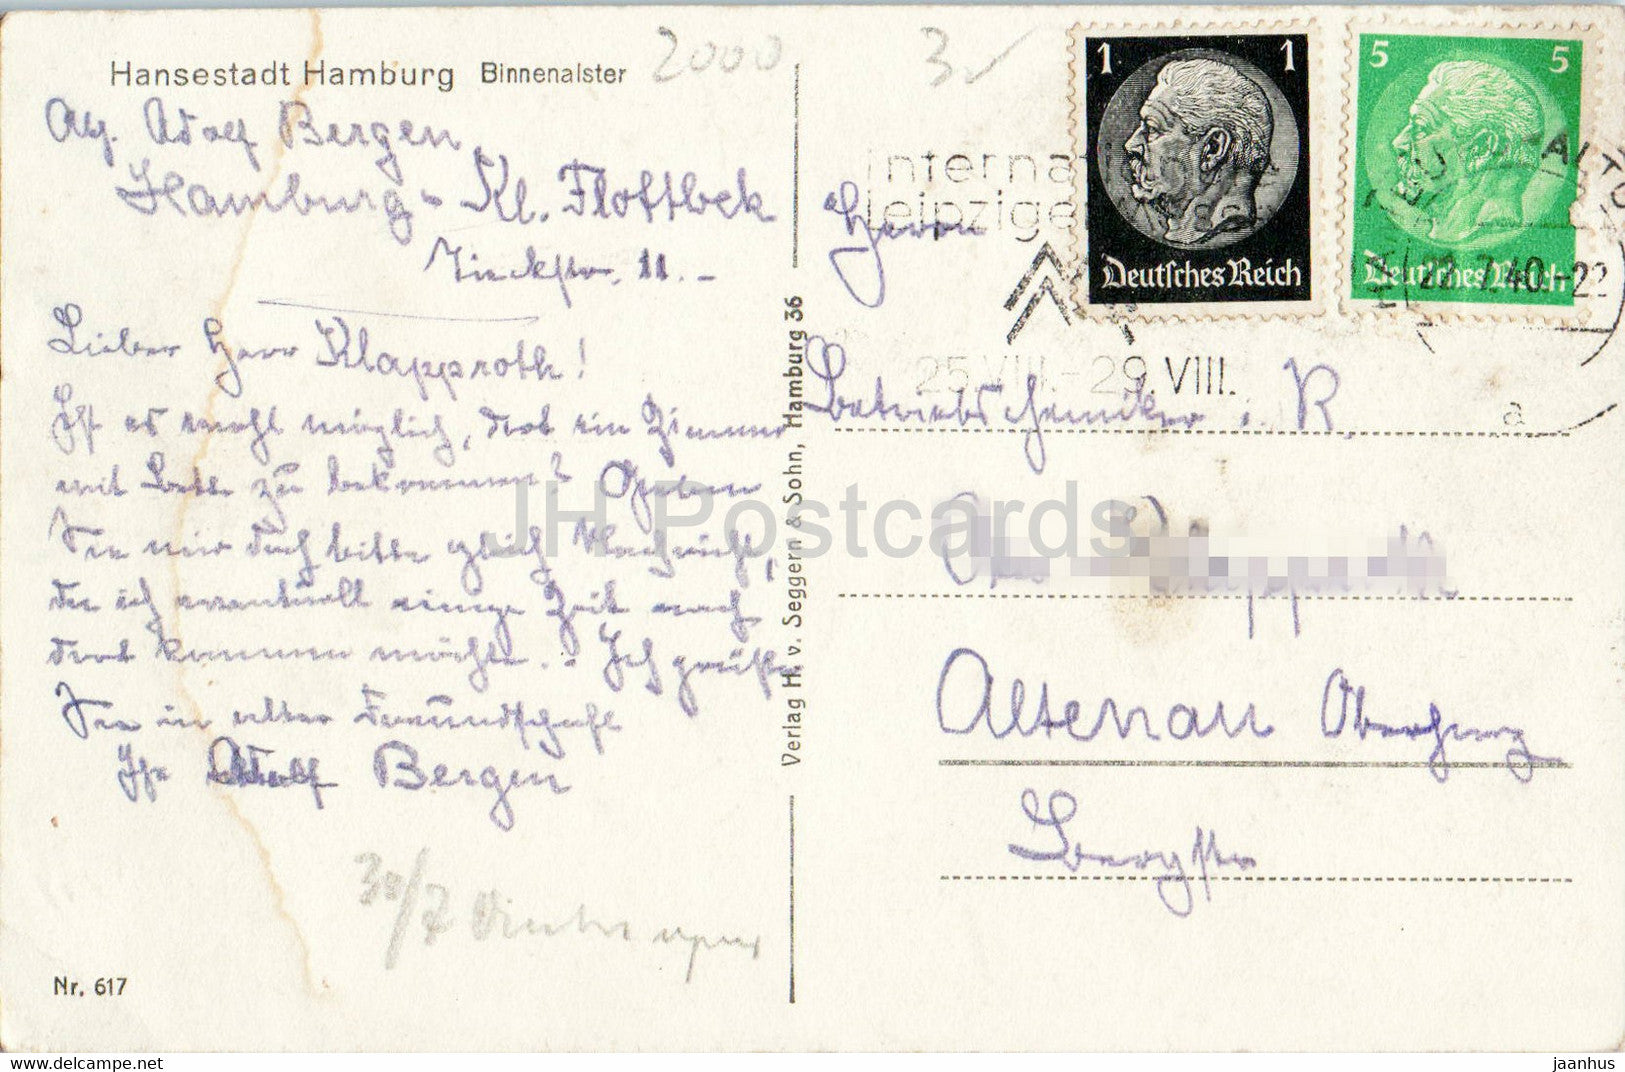 Hansestadt Hamburg Binnenalster
2000
3
Abs. Adolf Bergen
Hamburg - Kl. Flottbek
Tieckstr. 11. -
Lieber Herr Klapproth!
Ist es wohl möglich, dort ein Zimmer
mit Bett zu bekommen? Geben
Sie mir doch bitte gleich Nachricht,
da ich eventuell einige Zeit nach
dort kommen möchte. - Ich grüße
Sie in alter Freundschaft
Ihr Adolf Bergen
30/7
Nr. 617
Verlag H. v. Seggern & Sohn, Hamburg 36
1 1
Deutsches Reich
5 5
Deutsches Reich
Internat
Leipzige
25.VIII.-29.VIII.
ALTO
22.7.40.-22
a
Herrn
Betriebschemiker i. R.
Altenau Oberharz
Bergstr
JH Postcards
www.delcampe.net
jaanhus